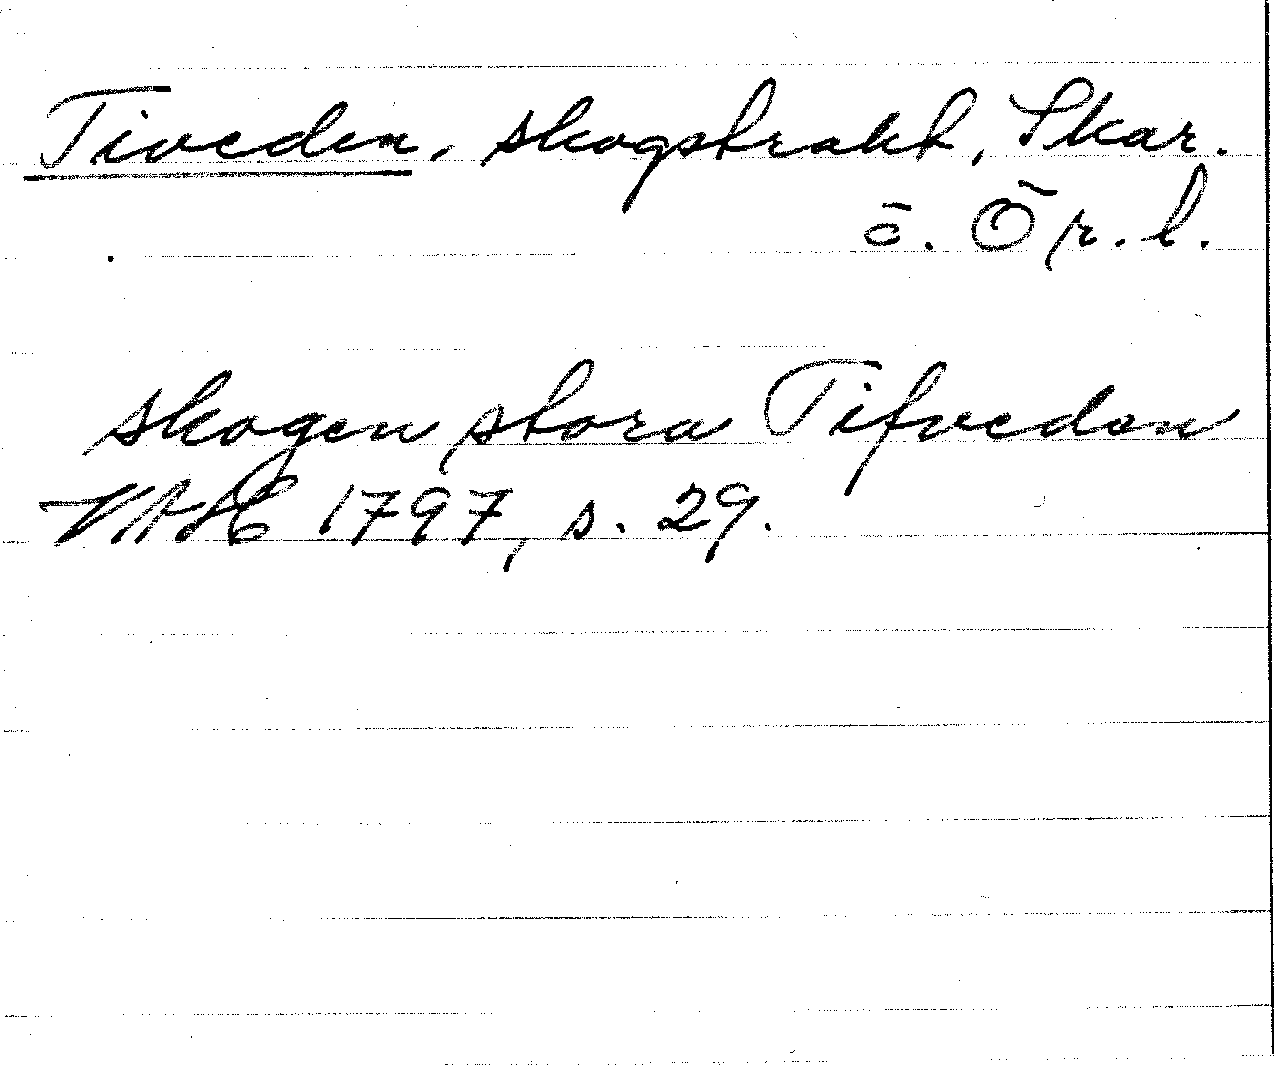 Tiveden, skogstrakt, Skar.
ö. Ör. l.
skogen stora Tifveden
VAH 1797, s. 29.